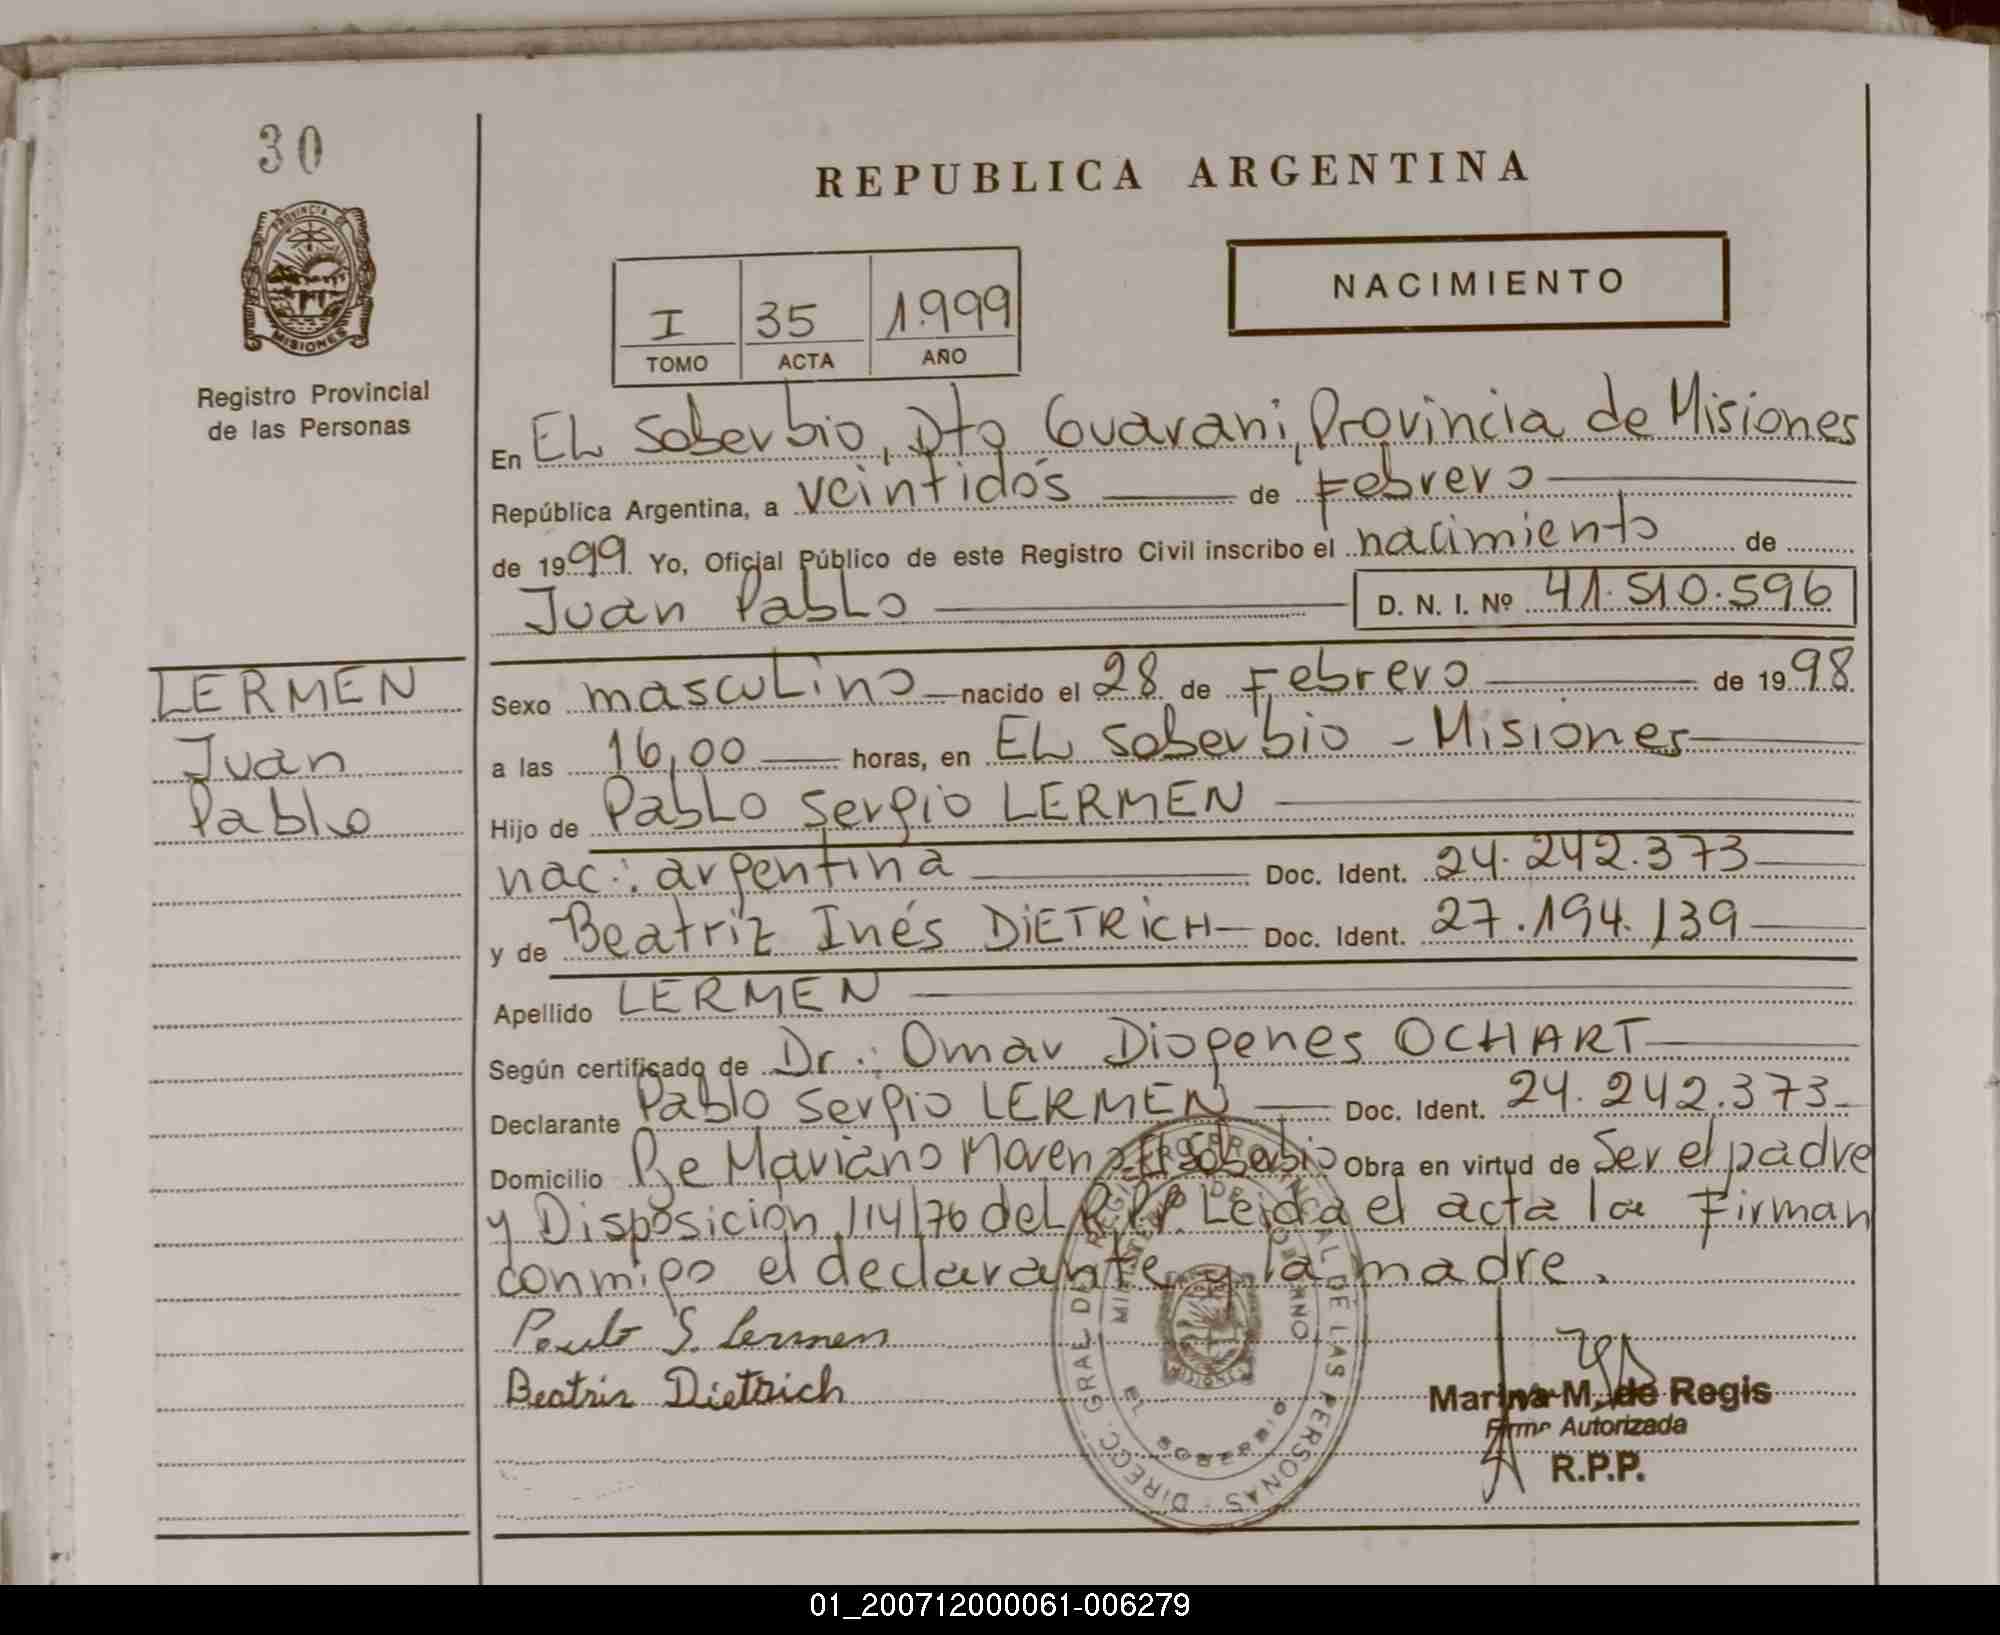 30
REPUBLICA ARGENTINA
PROVINCIA DE
MISIONES
Registro Provincial
de las Personas
NACIMIENTO
I 35 1.999
TOMO ACTA AÑO
En EL Soberbio, Dto Guarani, Provincia de Misiones
República Argentina, a veintidós de Febrero
de 1999 Yo, Oficial Público de este Registro Civil inscribo el nacimiento de
Juan Pablo D. N. I. Nº 41.510.596
LERMEN
Juan
Pablo
Sexo masculino nacido el 28 de Febrero de 1998
a las 16,00 horas, en EL Soberbio - Misiones
Hijo de Pablo Sergio LERMEN
nac.: argentina Doc. Ident. 24.242.373
y de Beatriz Inés DIETRICH Doc. Ident. 27.194.139
Apellido LERMEN
Según certificado de Dr.: Omar Diogenes OCHART
Declarante Pablo Sergio LERMEN Doc. Ident. 24.242.373
Domicilio Mariano Moreno El Soberbio Obra en virtud de Ser el padre
y Disposición 114/76 del R.P.P. Leida el acta la Firman
conmigo el declarante y la madre.
Pablo S. Lermen
Beatriz Dietrich
DIRECC. GRAL DE REGISTRO PROVINCIAL DE LAS PERSONAS
MINISTERIO DE GOBIERNO
EL SOBERBIO
MISIONES
Marina M. de Regis
Firma Autorizada
R.P.P.
01_200712000061-006279